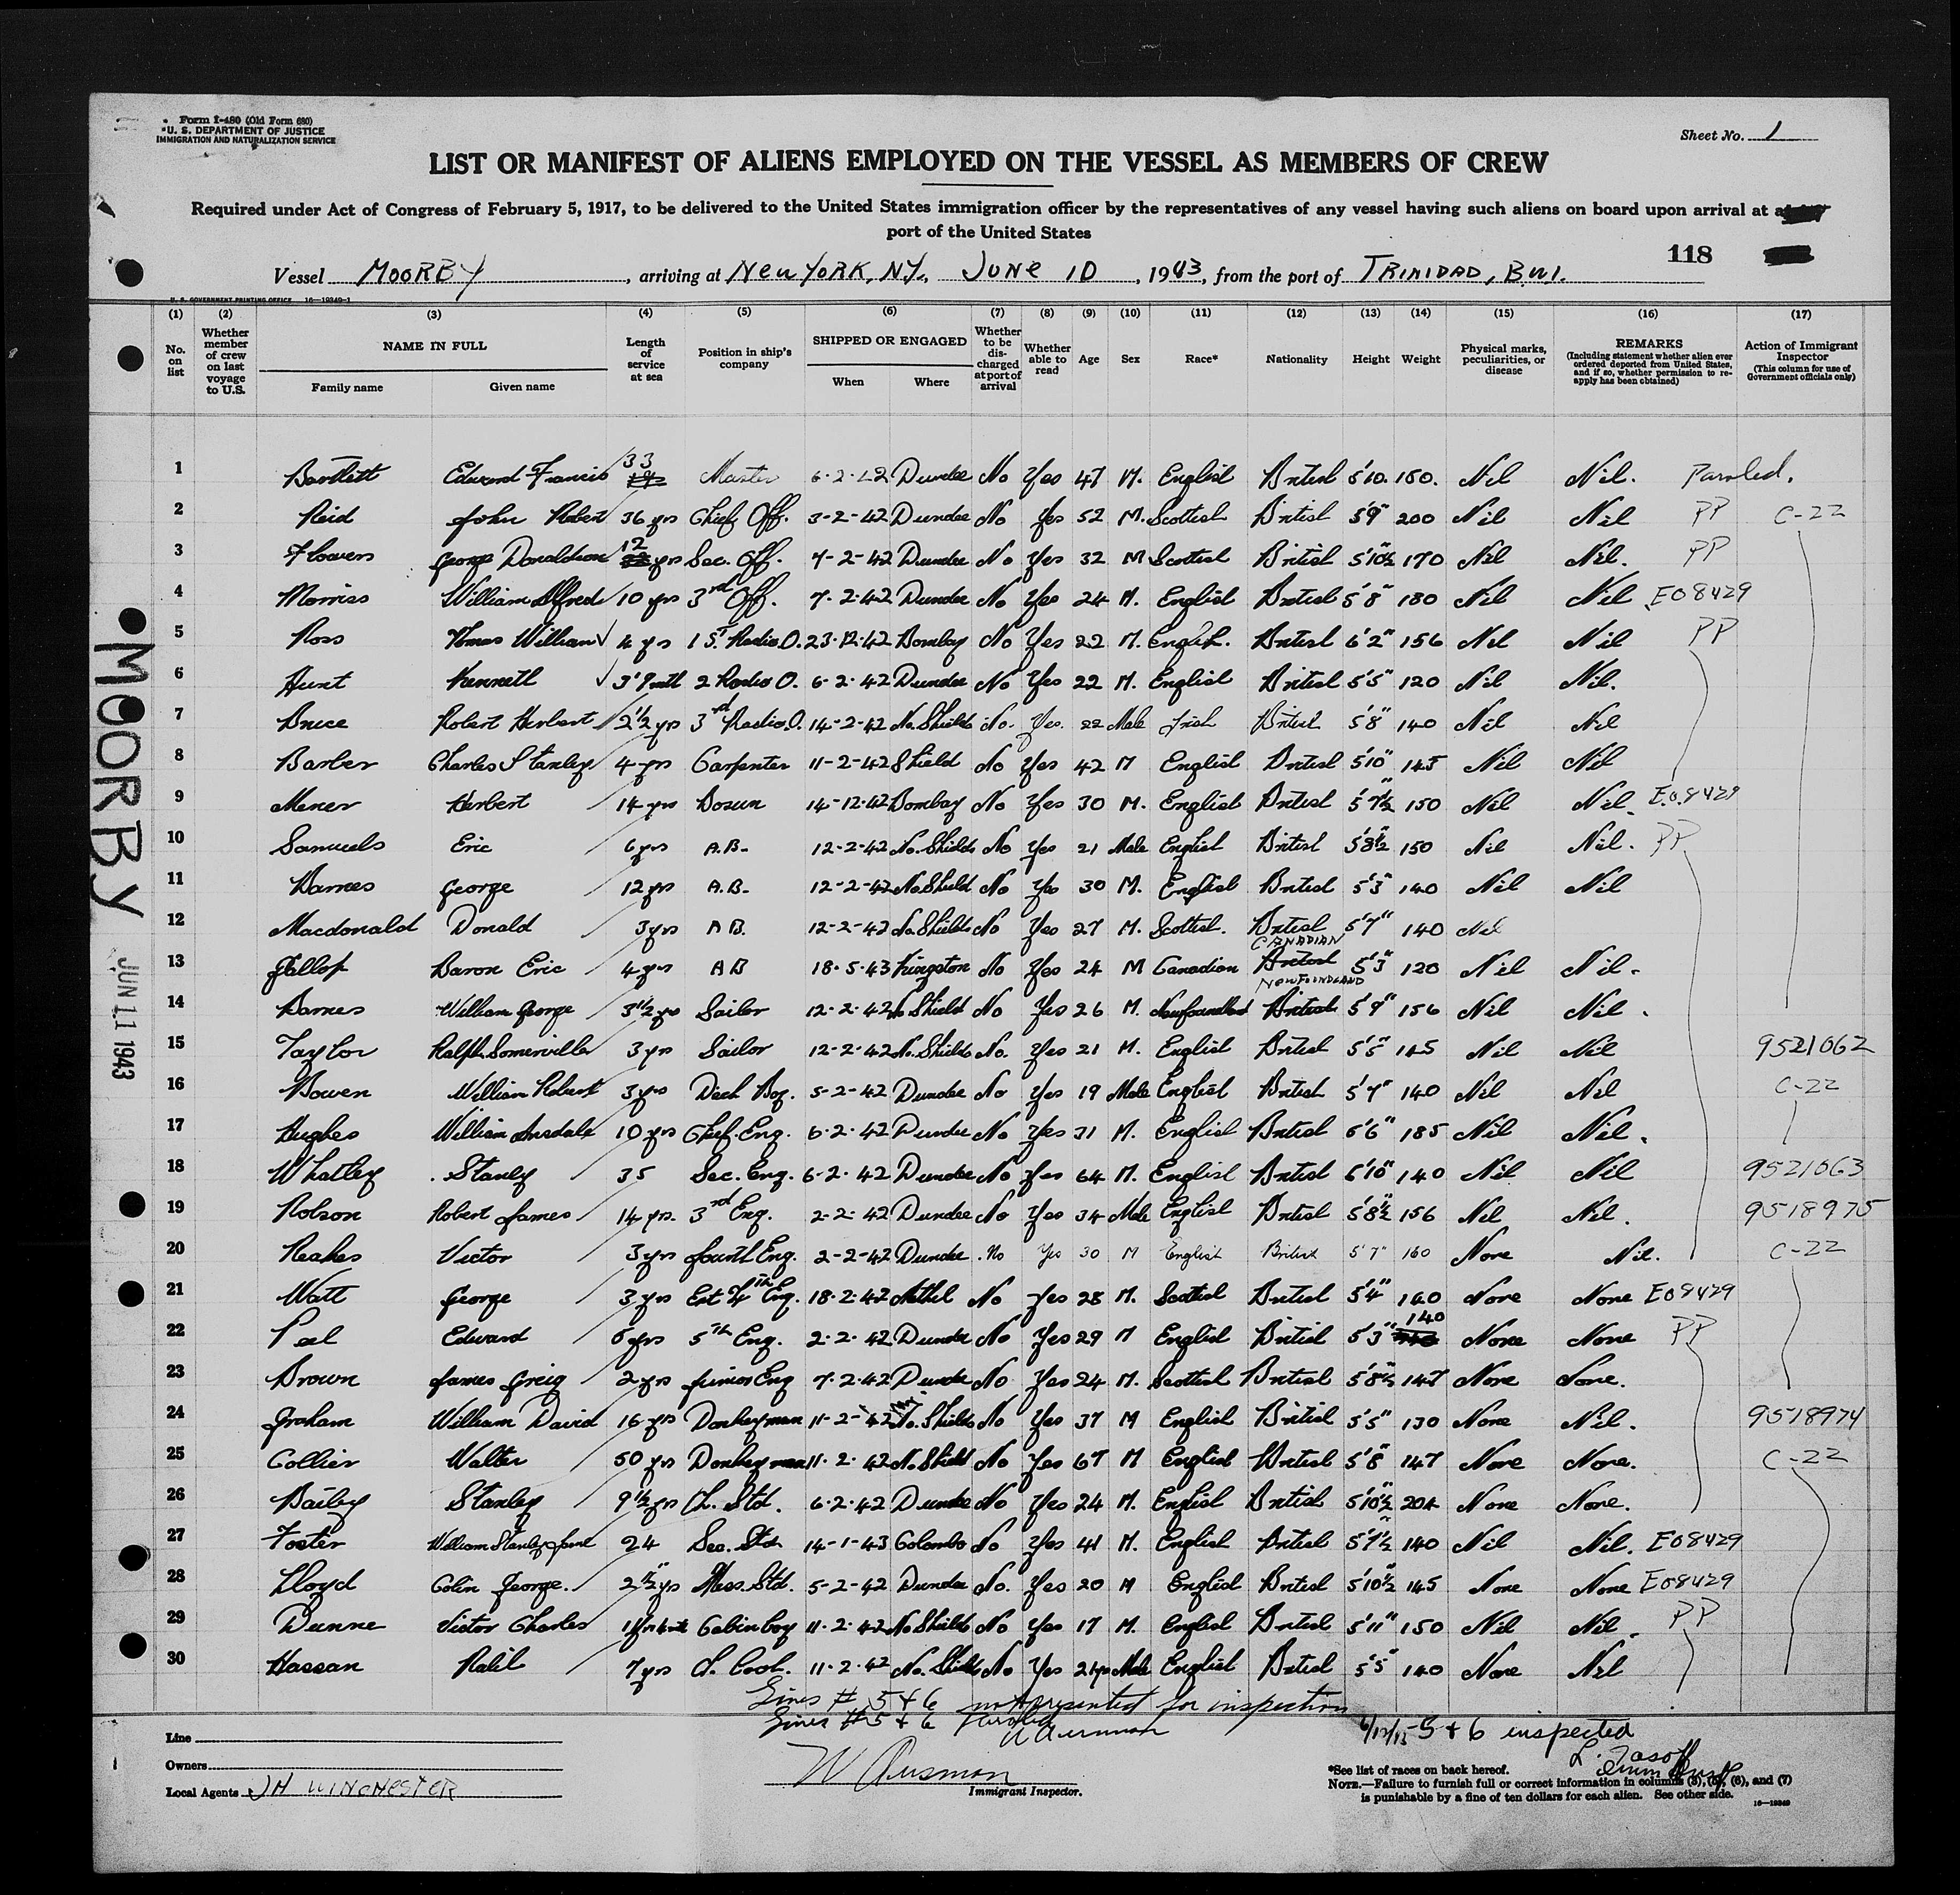 Form I-480 (Old Form 680)
U. S. DEPARTMENT OF JUSTICE
IMMIGRATION AND NATURALIZATION SERVICE
Sheet No. 1
LIST OR MANIFEST OF ALIENS EMPLOYED ON THE VESSEL AS MEMBERS OF CREW
Required under Act of Congress of February 5, 1917, to be delivered to the United States immigration officer by the representatives of any vessel having such aliens on board upon arrival at
port of the United States
118
Vessel MOORBY, arriving at NEW YORK, N.Y., JUNE 10, 1943, from the port of TRINIDAD, B.W.I.
U. S. GOVERNMENT PRINTING OFFICE 16—19349-1
(1) (2) (3) (4) (5) (6) (7) (8) (9) (10) (11) (12) (13) (14) (15) (16) (17)
No. on list
Whether member of crew on last voyage to U.S.
NAME IN FULL
Family name Given name
Length of service at sea
Position in ship's company
SHIPPED OR ENGAGED
When Where
Whether to be discharged at port of arrival
Whether able to read
Age Sex Race* Nationality Height Weight
Physical marks, peculiarities, or disease
REMARKS
(Including statement whether alien ever ordered deported from United States, and if so, whether permission to re-apply has been obtained)
Action of Immigrant Inspector
(This column for use of Government officials only)
1 Bartlett Edward Francis 33 Master 6-2-42 Dundee No Yes 47 M. English British 5'10 150. Nil Nil. Paroled.
2 Reid John Robert 36 yrs Chief Off. 3-2-42 Dundee No Yes 52 M. Scottish British 5'9" 200 Nil Nil PP C-22
3 Flowers George Donaldson 12 yrs Sec. Off. 7-2-42 Dundee No Yes 32 M Scottish British 5'10½ 170 Nil Nil. PP
4 Morriss William Alfred 10 yrs 3rd Off. 7.2.42 Dundee No Yes 24 M. English British 5'8" 180 Nil Nil E08429
5 Ross Thomas William 4 yrs 1st Radio O. 23.12.42 Bombay No Yes 22 M. English. British 6'2" 156 Nil Nil PP
6 Hunt Kenneth 2 Radio O. 6.2.42 Dundee No Yes 22 M. English British 5'5" 120 Nil Nil.
7 Bruce Robert Herbert 2½ yrs 3rd Radio O. 14-2-42 No. Shields No. Yes. 22 Male Irish British 5'8" 140 Nil Nil
8 Barber Charles Stanley 4 yrs Carpenter 11-2-42 Shield No Yes 42 M English British 5'10" 145 Nil Nil
9 Herbert 14 yrs Bosun 14-12-42 Bombay No Yes 30 M. English British 5'7½ 150 Nil Nil. E08429
10 Samuels Eric 6 yrs A.B. 12-2-42 No. Shields No Yes 21 Male English British 5'8½ 150 Nil Nil. PP
11 Barnes George 12 yrs A.B. 12-2-42 No Shield No Yes 30 M. English British 5'3" 140 Nil Nil
12 Macdonald Donald 3 yrs A B. 12-2-42 No Shields No Yes 27 M. Scottish. British 5'7" 140 Nil
CANADIAN
13 Baron Eric 4 yrs A B 18.5.43 Kingston No Yes 24 M Canadian British 5'3" 120 Nil Nil.
NEWFOUNDLAND
14 Barnes William George 3½ yrs Sailor 12.2.42 No Shield No Yes 26 M. Newfoundland British 5'9" 156 Nil Nil.
15 Taylor Ralph Somerville 3 yrs Sailor 12-2-42 No. Shields No. Yes 21 M. English British 5'5" 145 Nil Nil 9521062
16 Bowen William Robert 3 yrs Deck Boy. 5-2-42 Dundee No Yes 19 Male English British 5'7" 140 Nil Nil C-22
17 Hughes William 10 yrs Chief Eng. 6.2.42 Dundee No Yes 31 M. English British 5'6" 185 Nil Nil.
18 Whatley Stanley 35 Sec. Eng. 6.2.42 Dundee No Yes 64 M. English British 5'10" 140 Nil Nil 9521063
19 Robson Robert James 14 yrs. 3rd Eng. 2.2.42 Dundee No Yes 34 Male English British 5'8½ 156 Nil Nil. 9518975
20 Reakes Victor 3 yrs Fourth Eng. 2-2-42 Dundee. No Yes 30 M English British 5'7" 160 None Nil. C-22
21 Watt George 3 yrs Ext 4th Eng. 18.2.42 Methil No Yes 28 M. Scottish British 5'4" 140 None None E08429
22 Peel Edward 5 yrs 5th Eng. 2.2.42 Dundee No Yes 29 M English British 5'3" 140 None None PP
23 Brown James Greig 2 yrs Junior Eng 7.2.42 Dundee No Yes 24 M. Scottish British 5'8½ 147 None None.
24 Graham William David 16 yrs Donkeyman 11-2-42 No. Shields No Yes 37 M English British 5'5" 130 None Nil. 9518974
25 Collier Walter 50 yrs Donkeyman 11.2.42 No Shield No Yes 67 M English British 5'8" 147 None None. C-22
26 Bailey Stanley 9½ yrs Ch. Std. 6.2.42 Dundee No Yes 24 M. English British 5'10½ 204 None None.
27 Foster William Stanley 24 Sec. Std. 14-1-43 Colombo No Yes 41 M. English British 5'7½ 140 Nil Nil. E08429
28 Lloyd Colin George. 2½ yrs Mess. Std. 5-2-42 Dundee No. Yes 20 M English British 5'10½ 145 None None E08429
29 Dunne Victor Charles Cabin boy 11.2.42 No Shields No Yes 17 M. English British 5'11" 150 Nil Nil. PP
30 Hassan 7 yrs Ch. Cook. 11.2.42 No. Shields No Yes Male English British 5'5" 140 None Nil
Lines # 5 & 6 not presented for inspection
Lines # 5 & 6 Paroled
5 & 6 inspected
Line
Owners
Local Agents JH WINCHESTER
Immigrant Inspector.
*See list of races on back hereof.
NOTE.—Failure to furnish full or correct information in columns (3), (5), (6), and (7)
is punishable by a fine of ten dollars for each alien. See other side.
16—19349
MOORBY
JUN 11 1943